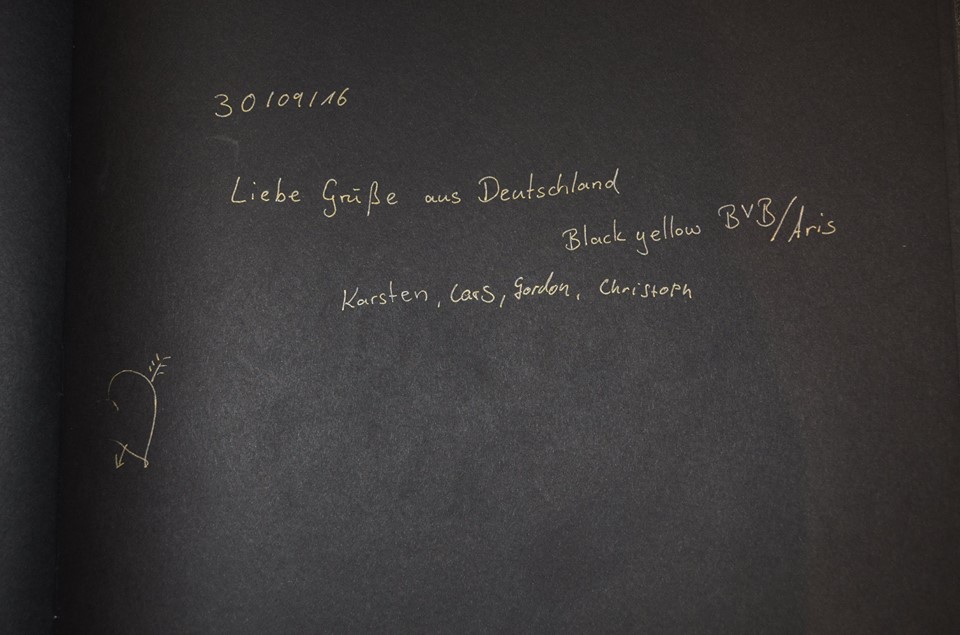 30/09/16
Liebe Grüße aus Deutschland
Black yellow BVB/Aris
Karsten, Lars, Gordon, Christoph